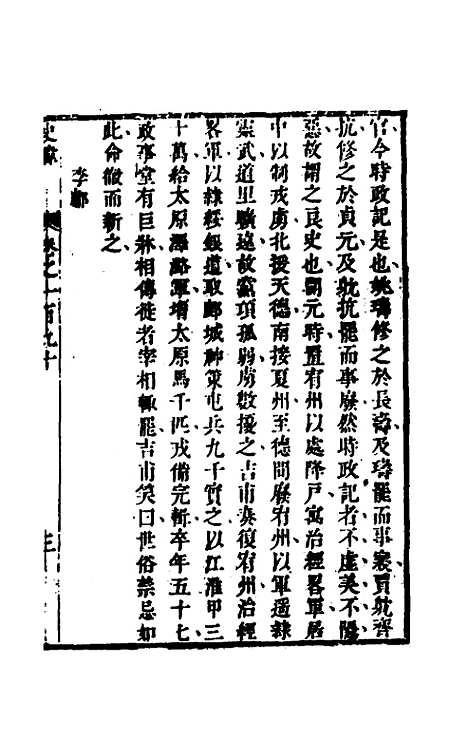 官今時政記是也姚璹修之於長壽及璹罷而事寢賈躭齊
抗修之於貞元及躭抗罷而事廢然時政記者不虛美不隱
惡故謂之良史也開元時置宥州以處降戸寓治經畧軍居
中以制戎虜北援天德南接夏州至德間廢宥州以軍遥隸
靈武道里曠遠故黨項孤弱虜數擾之吉甫奏復宥州治經
畧軍以隸綏銀道取鄜城神策屯兵九千實之以江淮甲三
十萬給太原澤潞軍增太原馬千匹戎備完輯卒年五十七
政事堂有巨牀相傳徙者宰相輙罷吉甫笑曰世俗禁忌如
此命徹而新之
李鄘
史緯
卷之一百九十
三